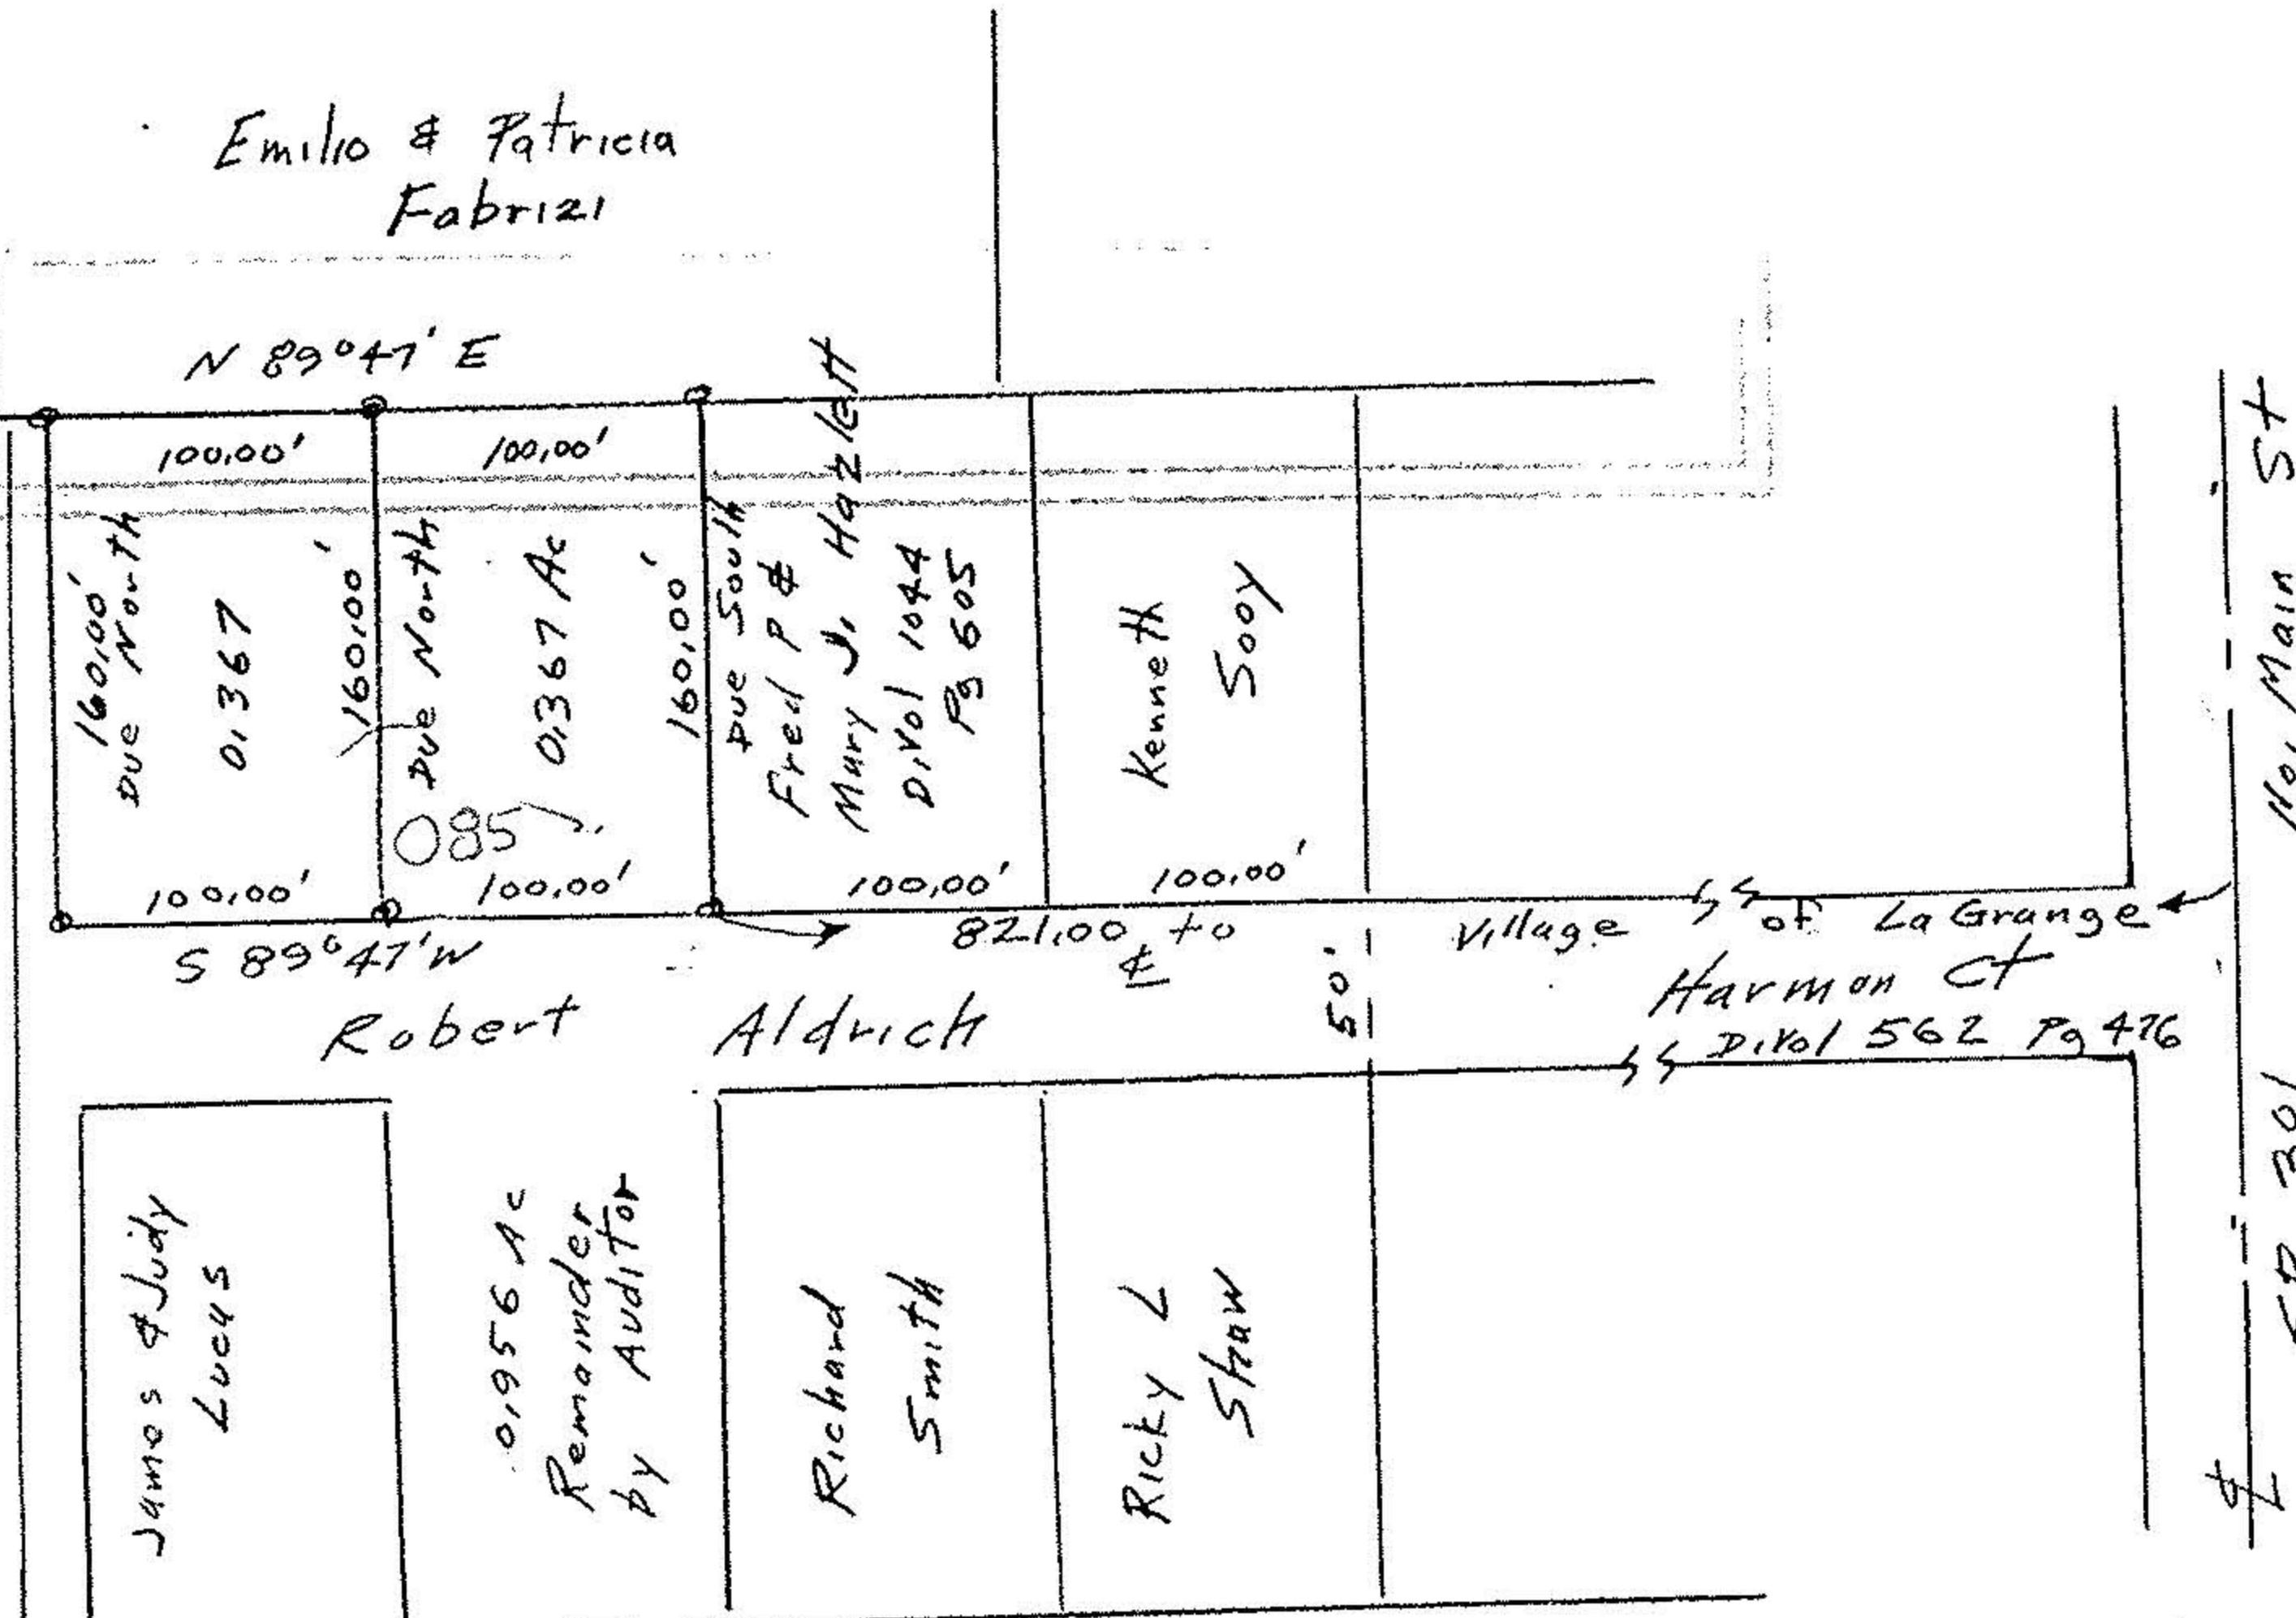 Emilio & Patricia
Fabrizi
N 89°47' E
100.00'
100.00'
160.00'
Due North
0.367
160.00'
Due North
0.367 Ac
160.00'
Due South
Fred P &
Mary J. Hazlett
D.Vol 1044
Pg 605
Kenneth
Sooy
085
100.00'
100.00'
100.00'
100.00'
S 89°47'W
821.00 to
℄
Village of LaGrange
50'
Harmon Ct
D.Vol 562 Pg 476
Robert Aldrich
James & Judy
Lucas
0.956 Ac
Remainder
by Auditor
Richard
Smith
Ricky L
Shaw
No. Main St
℄ SR 301